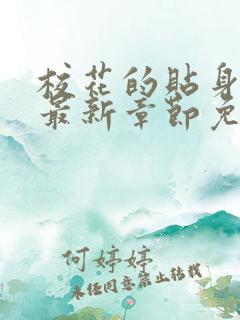 校花的贴身
最新章节免
何婷婷
未经同意禁止转载